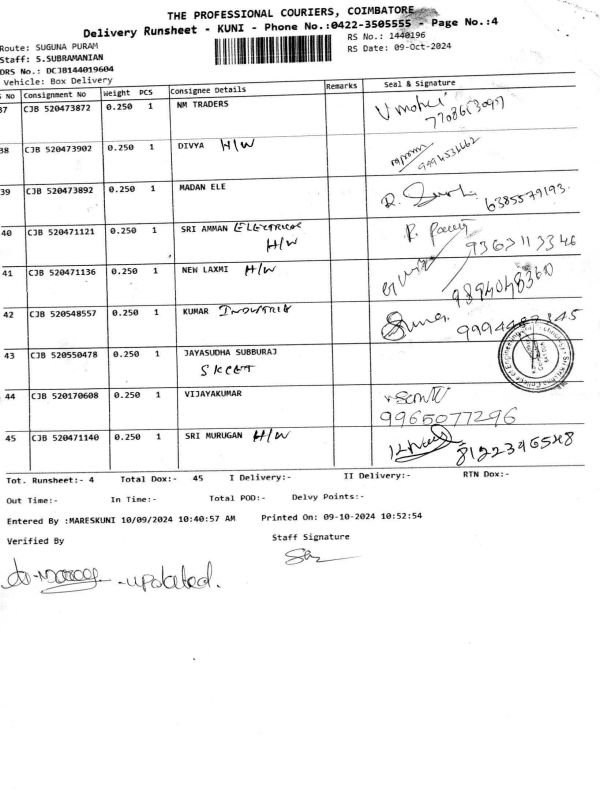 THE PROFESSIONAL COURIERS, COIMBATORE
Delivery Runsheet - KUNI - Phone No.:0422-3505555 - Page No.:4
Route: SUGUNA PURAM
RS No.: 1440196
Staff: S.SUBRAMANIAN
RS Date: 09-Oct-2024
DRS No.: DCJB144019604
Vehicle: Box Delivery
S No Consignment No Weight PCS Consignee Details Remarks Seal & Signature
37 CJB 520473872 0.250 1 NM TRADERS
38 CJB 520473902 0.250 1 DIVYA H/W
39 CJB 520473892 0.250 1 MADAN ELE 6385579193
40 CJB 520471121 0.250 1 SRI AMMAN ELECTRICK
H/W 9363113346
41 CJB 520471136 0.250 1 NEW LAXMI H/W 9894048360
42 CJB 520548557 0.250 1 KUMAR INDUSTRIA
43 CJB 520550478 0.250 1 JAYASUDHA SUBBURAJ
SKCET
44 CJB 520170608 0.250 1 VIJAYAKUMAR
9965077296
45 CJB 520471140 0.250 1 SRI MURUGAN H/W
Tot. Runsheet:- 4 Total Dox:- 45 I Delivery:- II Delivery:- RTN Dox:-
Out Time:- In Time:- Total POD:- Delvy Points:-
Entered By :MARESKUNI 10/09/2024 10:40:57 AM Printed On: 09-10-2024 10:52:54
Verified By Staff Signature
updated.